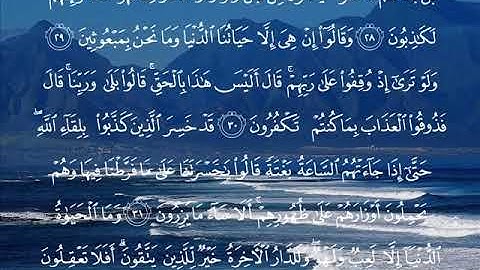 لَكَٰذِبُونَ ٢٨ وَقَالُوٓا۟ إِنْ هِىَ إِلَّا حَيَاتُنَا ٱلدُّنْيَا وَمَا نَحْنُ بِمَبْعُوثِينَ ٢٩
وَلَوْ تَرَىٰٓ إِذْ وُقِفُوا۟ عَلَىٰ رَبِّهِمْ ۚ قَالَ أَلَيْسَ هَٰذَا بِٱلْحَقِّ ۚ قَالُوا۟ بَلَىٰ وَرَبِّنَا ۚ قَالَ
فَذُوقُوا۟ ٱلْعَذَابَ بِمَا كُنتُمْ تَكْفُرُونَ ٣٠ قَدْ خَسِرَ ٱلَّذِينَ كَذَّبُوا۟ بِلِقَآءِ ٱللَّهِ ۖ
حَتَّىٰٓ إِذَا جَآءَتْهُمُ ٱلسَّاعَةُ بَغْتَةً قَالُوا۟ يَٰحَسْرَتَنَا عَلَىٰ مَا فَرَّطْنَا فِيهَا وَهُمْ
يَحْمِلُونَ أَوْزَارَهُمْ عَلَىٰ ظُهُورِهِمْ ۚ أَلَا سَآءَ مَا يَزِرُونَ ٣١ وَمَا ٱلْحَيَوٰةُ
ٱلدُّنْيَآ إِلَّا لَعِبٌ وَلَهْوٌ ۖ وَلَلدَّارُ ٱلْءَاخِرَةُ خَيْرٌ لِّلَّذِينَ يَتَّقُونَ ۗ أَفَلَا تَعْقِلُونَ